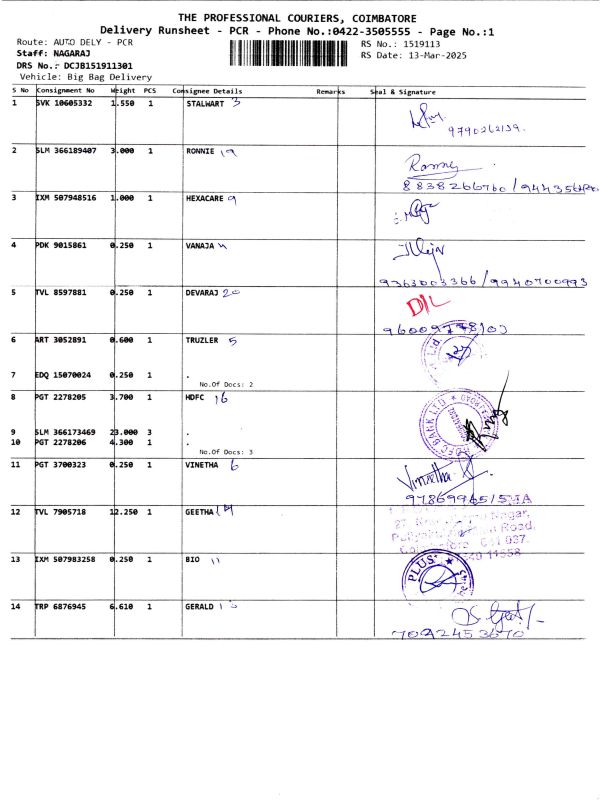 THE PROFESSIONAL COURIERS, COIMBATORE
Delivery Runsheet - PCR - Phone No.:0422-3505555 - Page No.:1
Route: AUTO DELY - PCR
RS No.: 1519113
Staff: NAGARAJ
RS Date: 13-Mar-2025
DRS No.: DCJB151911301
Vehicle: Big Bag Delivery
S No Consignment No Weight PCS Consignee Details Remarks Seal & Signature
1 SVK 10605332 1.550 1 STALWART 3
9790262139.
2 SLM 366189407 3.000 1 RONNIE 19
Ronney
8838266760/
3 IXM 507948516 1.000 1 HEXACARE 9
4 PDK 9015861 0.250 1 VANAJA
9363003366/9940700993
5 TVL 8597881 0.250 1 DEVARAJ 20
D/L
6 ART 3052891 0.600 1 TRUZLER 5
7 EDQ 15070024 0.250 1 .
No.Of Docs: 2
8 PGT 2278205 3.700 1 HDFC 16
HDFC BANK LTD
9 SLM 366173469 23.000 3 .
10 PGT 2278206 4.300 1 .
No.Of Docs: 3
11 PGT 3700323 0.250 1 VINETHA 6
Vineetha
12 TVL 7905718 12.250 1 GEETHA
Nagar,
Road,
13 IXM 507983258 0.250 1 BIO 11
PLUS
14 TRP 6876945 6.610 1 GERALD
7092453670